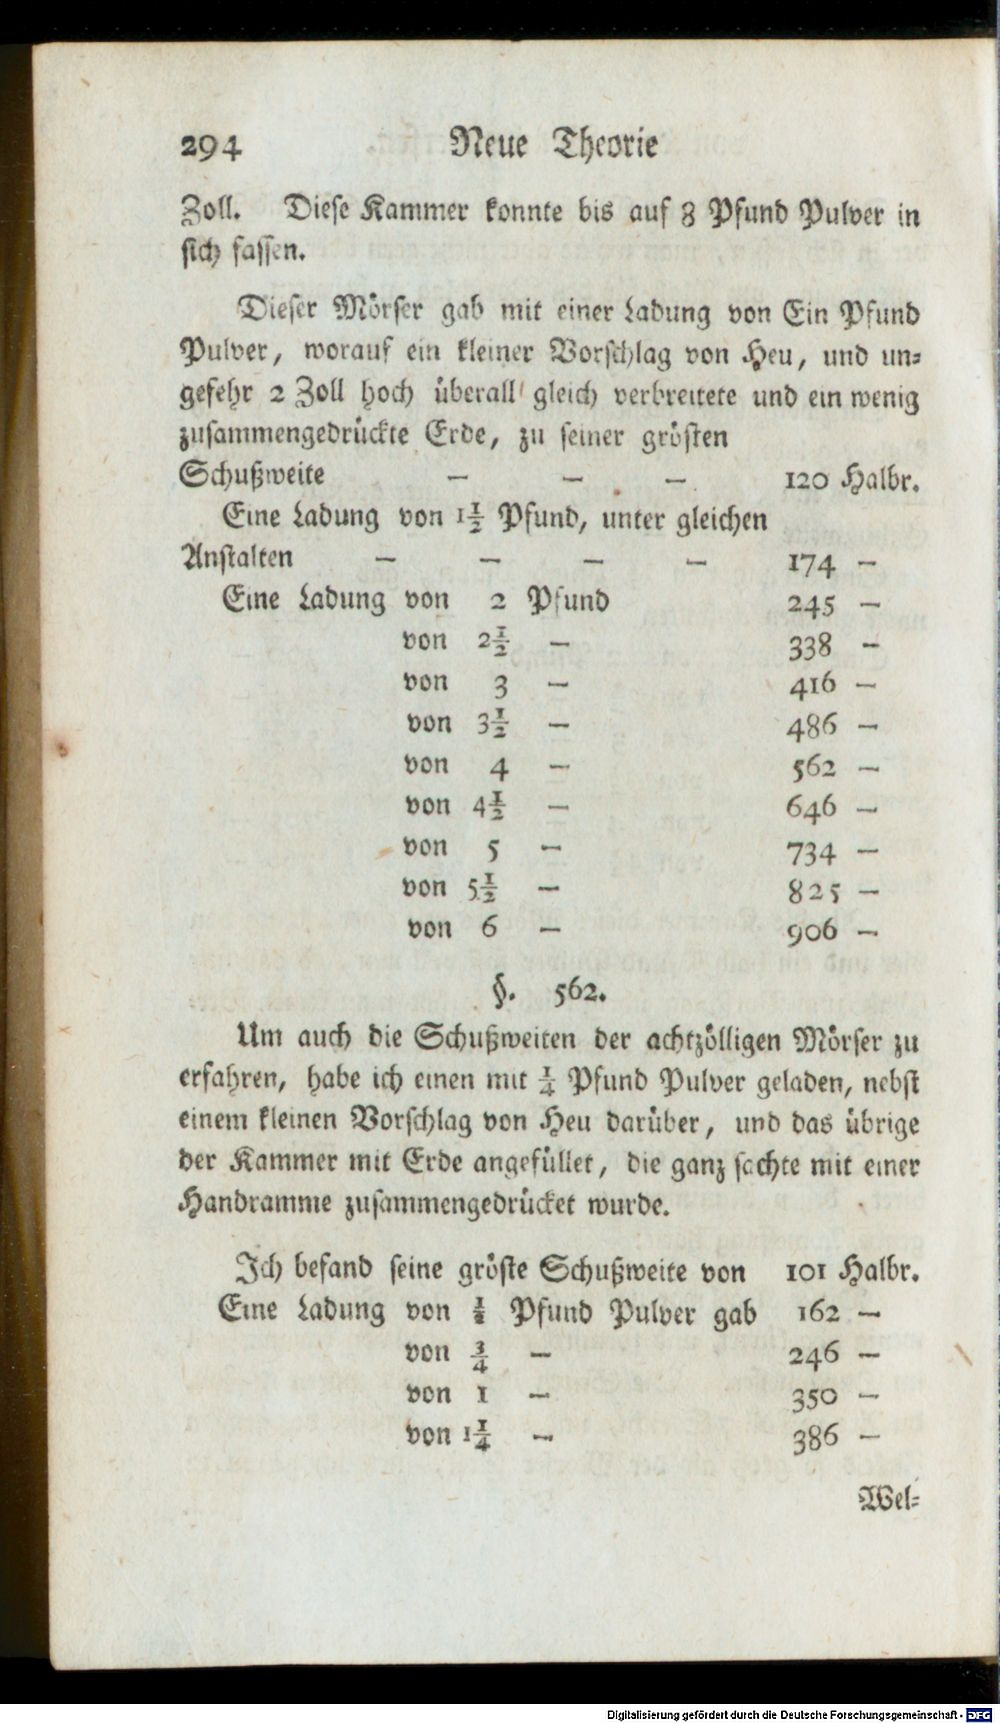 294 Neue Theorie
Zoll. Dieſe Kammer konnte bis auf 8 Pfund Pulver in
ſich faſſen.
Dieſer Mörſer gab mit einer Ladung von Ein Pfund
Pulver, worauf ein kleiner Vorſchlag von Heu, und un⸗
gefehr 2 Zoll hoch überall gleich verbreitete und ein wenig
zuſammengedrückte Erde, zu ſeiner gröſten
Schußweite — — — 120 Halbr.
Eine Ladung von 1½ Pfund, unter gleichen
Anſtalten — — — — 174 —
Eine Ladung von 2 Pfund 245 —
von 2½ — 338 —
von 3 — 416 —
von 3½ — 486 —
von 4 — 562 —
von 4½ — 646 —
von 5 — 734 —
von 5½ — 825 —
von 6 — 906 —
§. 562.
Um auch die Schußweiten der achtzölligen Mörſer zu
erfahren, habe ich einen mit ¼ Pfund Pulver geladen, nebſt
einem kleinen Vorſchlag von Heu darüber, und das übrige
der Kammer mit Erde angefüllet, die ganz ſachte mit einer
Handramme zuſammengedrücket wurde.
Ich befand ſeine gröſte Schußweite von 101 Halbr.
Eine Ladung von ½ Pfund Pulver gab 162 —
von ¾ — 246 —
von 1 — 350 —
von 1¼ — 386 —
Wel⸗
Digitalisierung gefördert durch die Deutsche Forschungsgemeinschaft - DFG